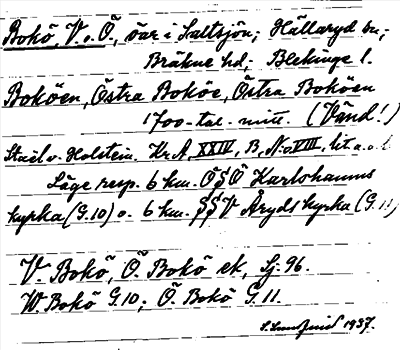 Bokö, V. o. Ö., öar i Saltsjön; Hällaryd sn;
Bräkne hd; Blekinge l.
Boköen, Östra Boköe, Östra Boköen
1700-tal. mitt. (Vänd!)
Stael v. Holstein. Kr. A, XXIV, B, N:o VIII, lit a. o. b
Läge resp. 6 km. ÖSÖ Karlshamns
kyrka (G.10) o. 6 km. SSV Åryds kyrka (G.11)
V. Bokö, Ö. Bokö ek, Sj. 96.
W. Bokö G.10; Ö. Bokö G.11.
1937.